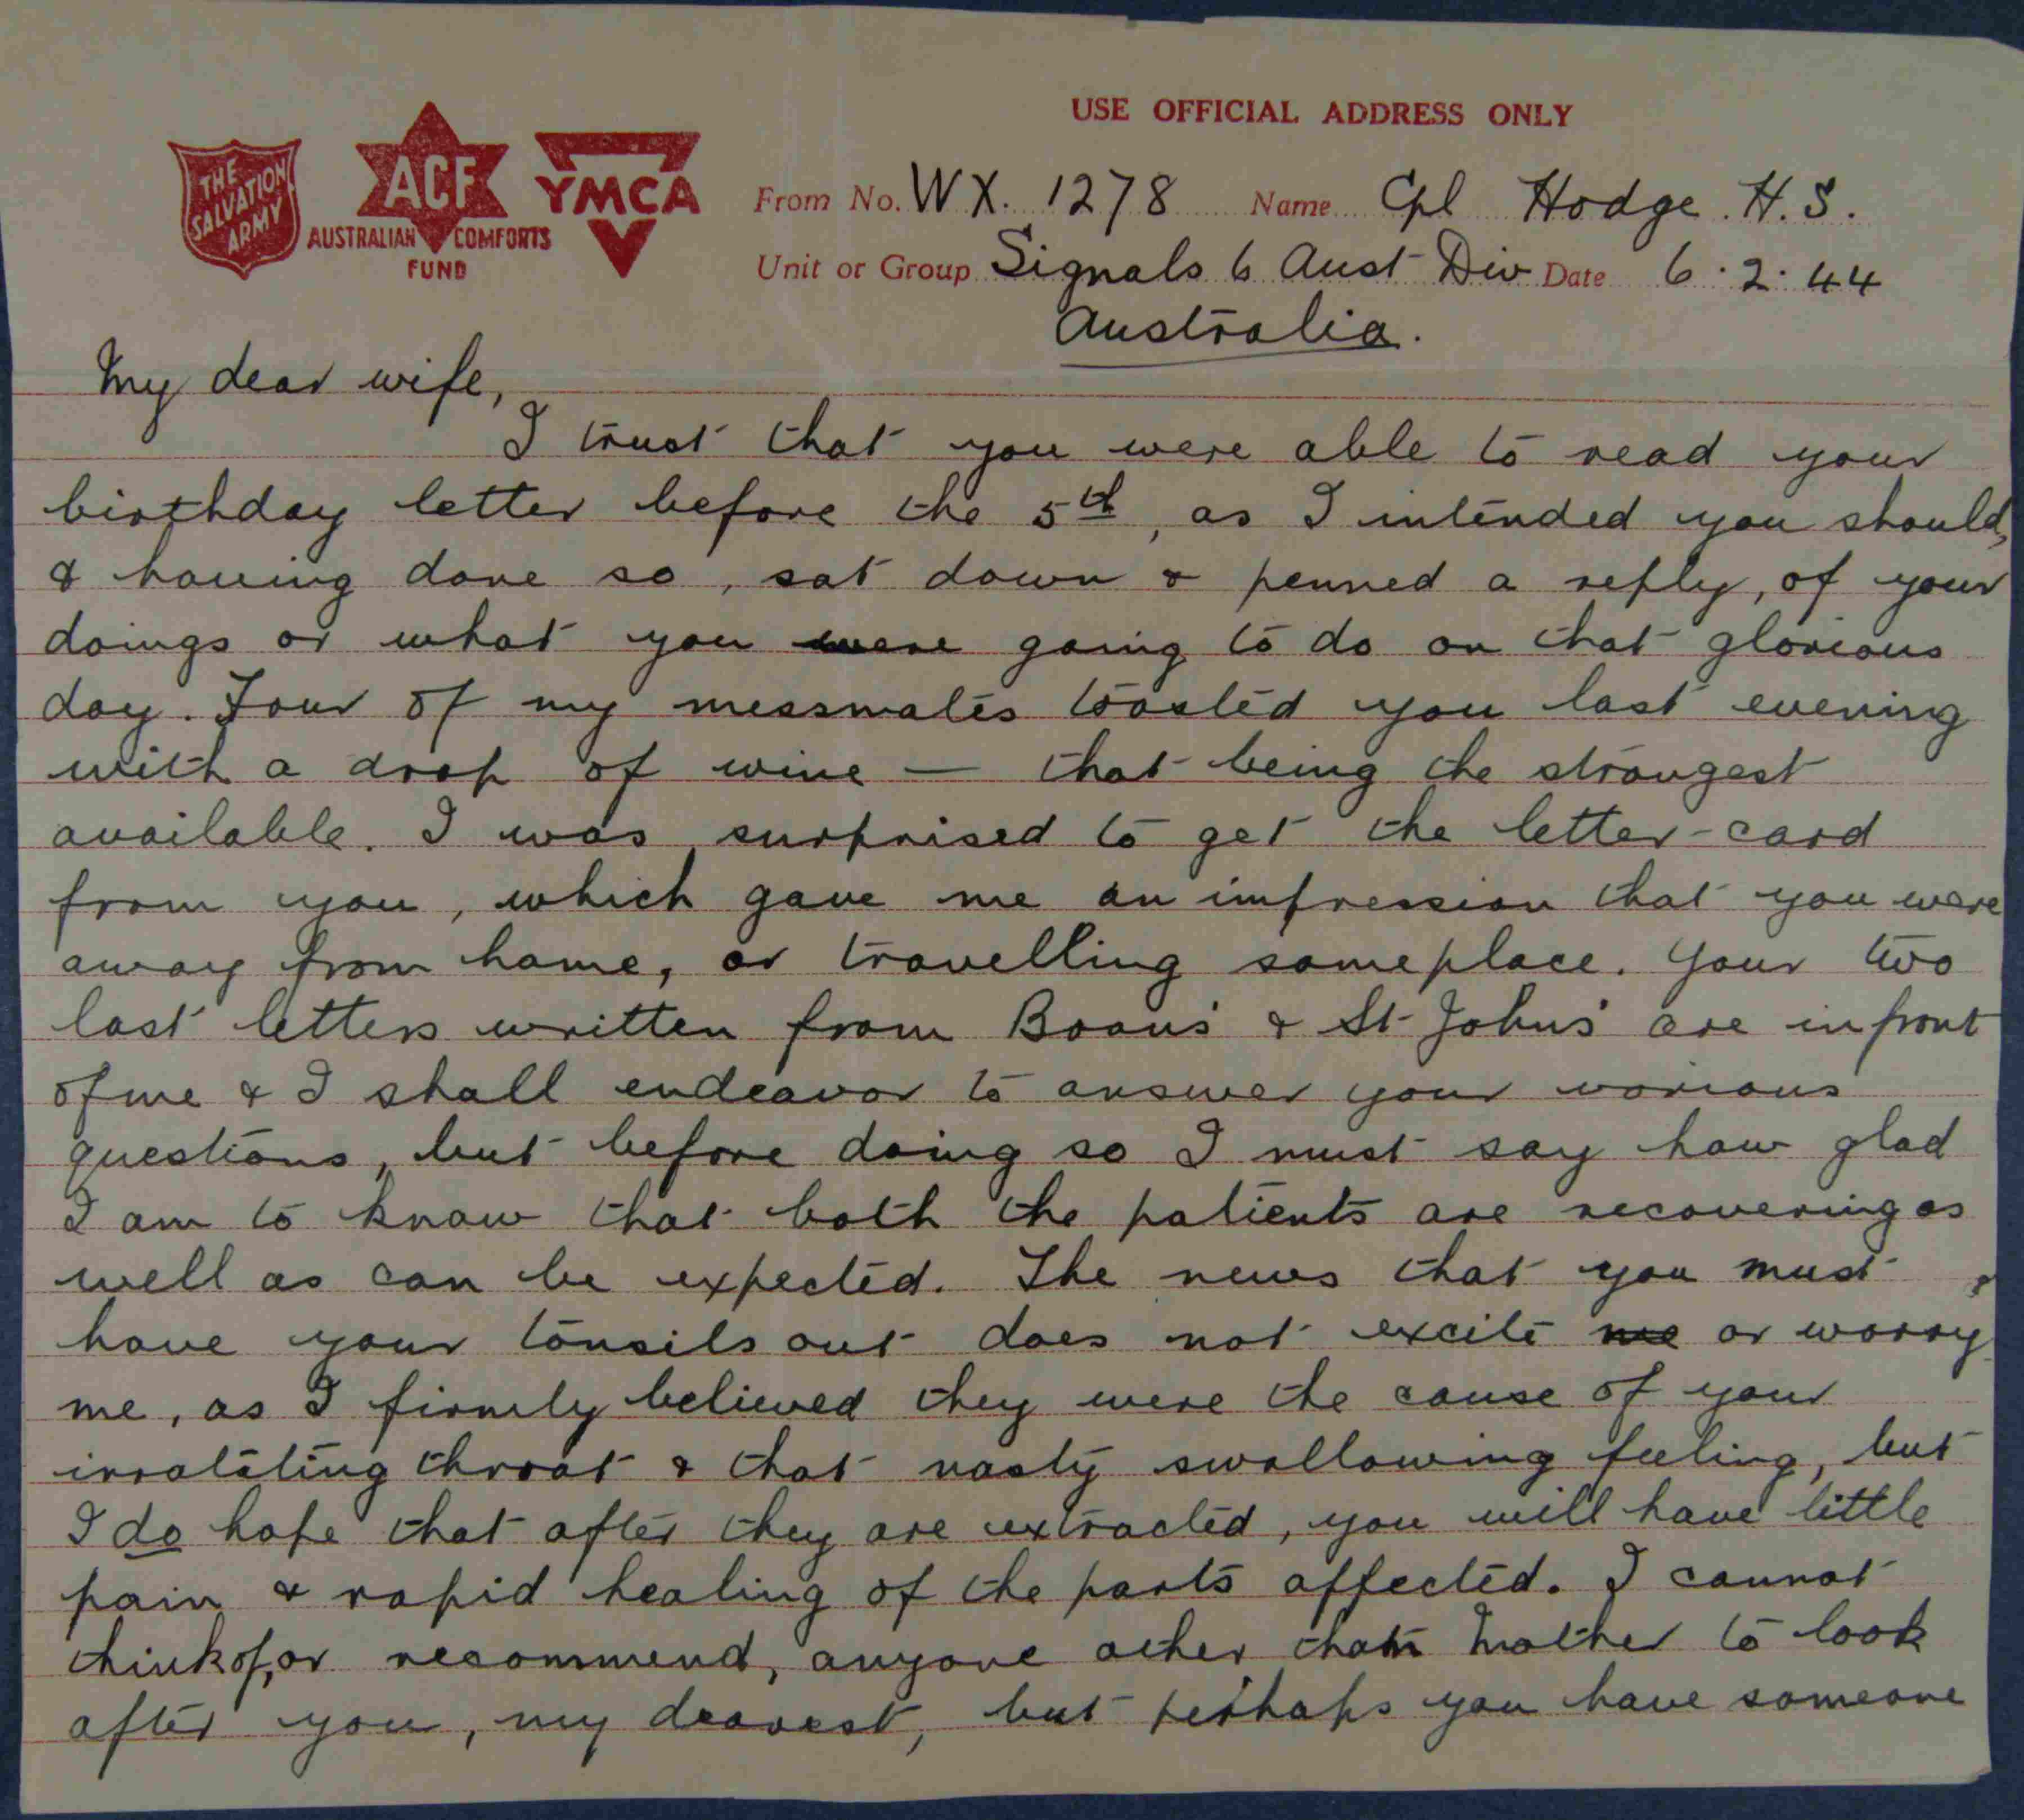 USE OFFICIAL ADDRESS ONLY
THE SALVATION ARMY
ACF
AUSTRALIAN COMFORTS
FUND
YMCA
From No. WX. 1278 Name Cpl Hodge. H.S.
Unit or Group Signals 6 Aust Div Date 6.2.44
Australia.
My dear wife,
I trust that you were able to read your
birthday letter before the 5th, as I intended you should,
& having done so, sat down & penned a reply, of your
doings or what you were going to do on that glorious
day. Four of my messmates toasted you last evening
with a drop of wine — that being the strongest
available. I was surprised to get the letter-card
from you, which gave me an impression that you were
away from home, or travelling someplace. Your two
last letters written from Boans' & St Johns' are infront
of me & I shall endeavor to answer your various
questions, but before doing so I must say how glad
I am to know that both the patients are recovering as
well as can be expected. The news that you must
have your tonsils out does not excite me or worry
me, as I firmly believed they were the cause of your
irratating throat & that nasty swallowing feeling, but
I do hope that after they are extracted, you will have little
pain & rapid healing of the parts affected. I cannot
think of, or recommend, anyone other than Mother to look
after you, my dearest, but perhaps you have someone